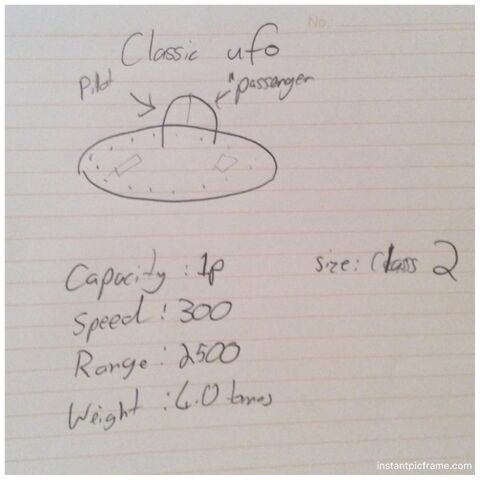 No.
Classic ufo
Pilot
"passenger
Capacity : 1p
size: Class 2
Speed : 300
Range : 2500
Weight : 4.0 tones
instantpicframe.com